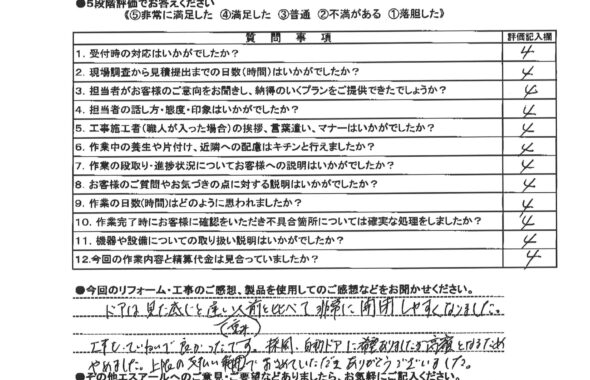 ●5段階評価でお答えください
《⑤非常に満足した ④満足した ③普通 ②不満がある ①落胆した》
質問事項 評価記入欄
1. 受付時の対応はいかがでしたか? 4
2. 現場調査から見積提出までの日数(時間)はいかがでしたか? 4
3. 担当者がお客様のご意向をお聞きし、納得のいくプランをご提供できたでしょうか? 4
4. 担当者の話し方・態度・印象はいかがでしたか? 4
5. 工事施工者(職人が入った場合)の挨拶、言葉遣い、マナーはいかがでしたか? 4
6. 作業中の養生や片付け、近隣への配慮はキチンと行えましたか? 4
7. 作業の段取り・進捗状況についてお客様への説明はいかがでしたか? 4
8. お客様のご質問やお気づきの点に対する説明はいかがでしたか? 4
9. 作業の日数(時間)はどのように思われましたか? 4
10. 作業完了時にお客様に確認をいただき不具合箇所については確実な処理をしましたか? 4
11. 機器や設備についての取り扱い説明はいかがでしたか? 4
12.今回の作業内容と精算代金は見合っていましたか? 4
●今回のリフォーム・工事のご感想、製品を使用してのご感想などをお聞かせください。
ドアは見た感じと違い以前と比べて非常に開閉しやすくなりました。
工事もていねいで良かったです。採用、自動ドアに
やめました。上限の支払い範囲でおさめていただき ありがとうございました。
●その他エスアールへのご意見・ご要望などありましたら、お気軽にご記入ください。